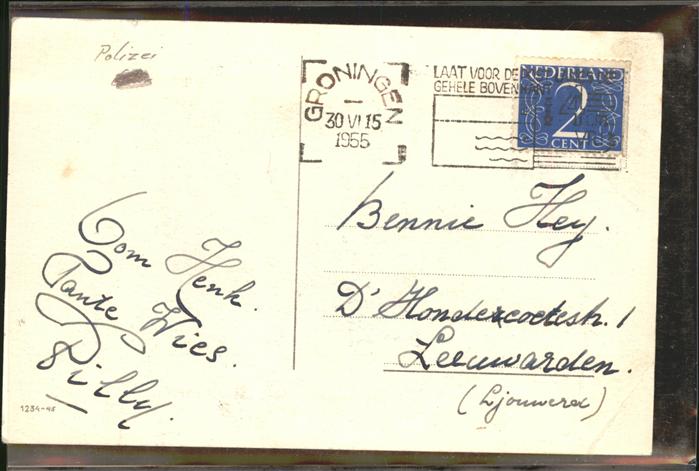 Polizei
GRONINGEN
30 VI 15
1955
LAAT VOOR DE
GEHELE BOVENKANT
NEDERLAND
2
CENT
Oom Henk.
Tante Wies.
Pilly.
1234-45
Bennie Hey.
D'Hondecoetestr. 1
Leeuwarden.
(Ljouwerd)